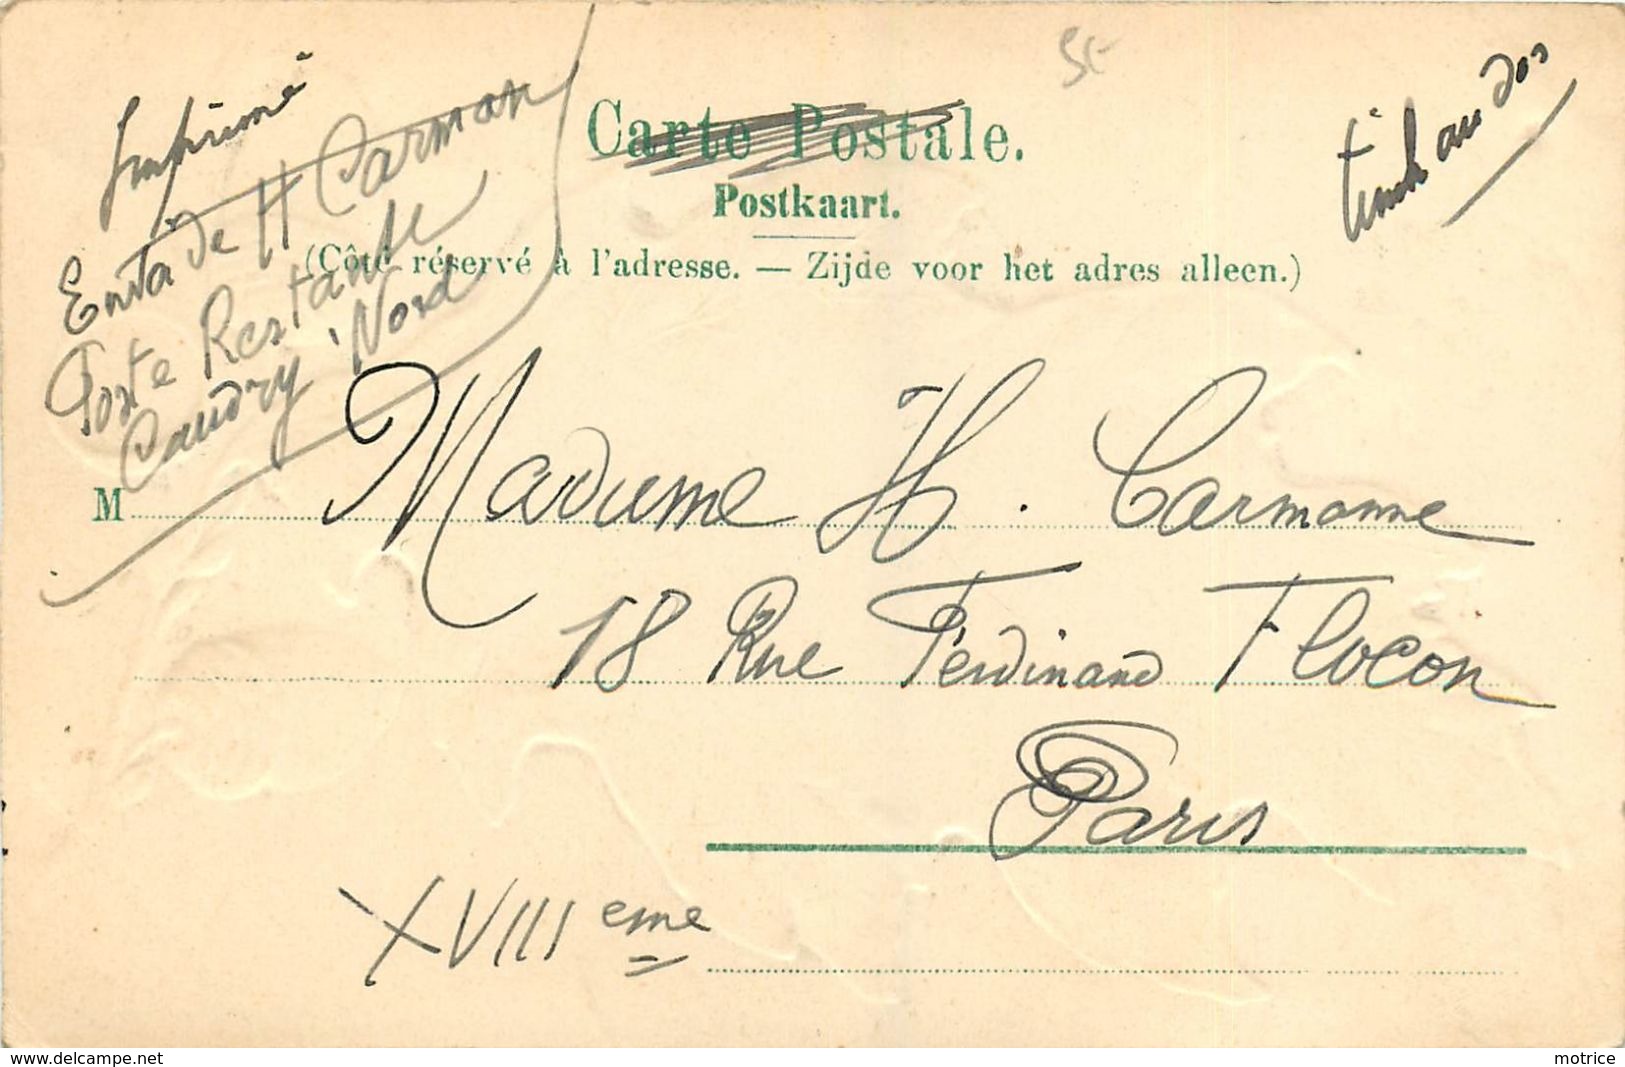 Imprimé
Carte Postale.
timb au dos
Postkaart.
Env. de H Carman
Poste Restante
Caudry Nord
(Côté réservé à l'adresse. — Zijde voor het adres alleen.)
M Madame H. Carmanne
18 Rue Ferdinand Flocon
Paris
XVIIIeme
www.delcampe.net
motrice